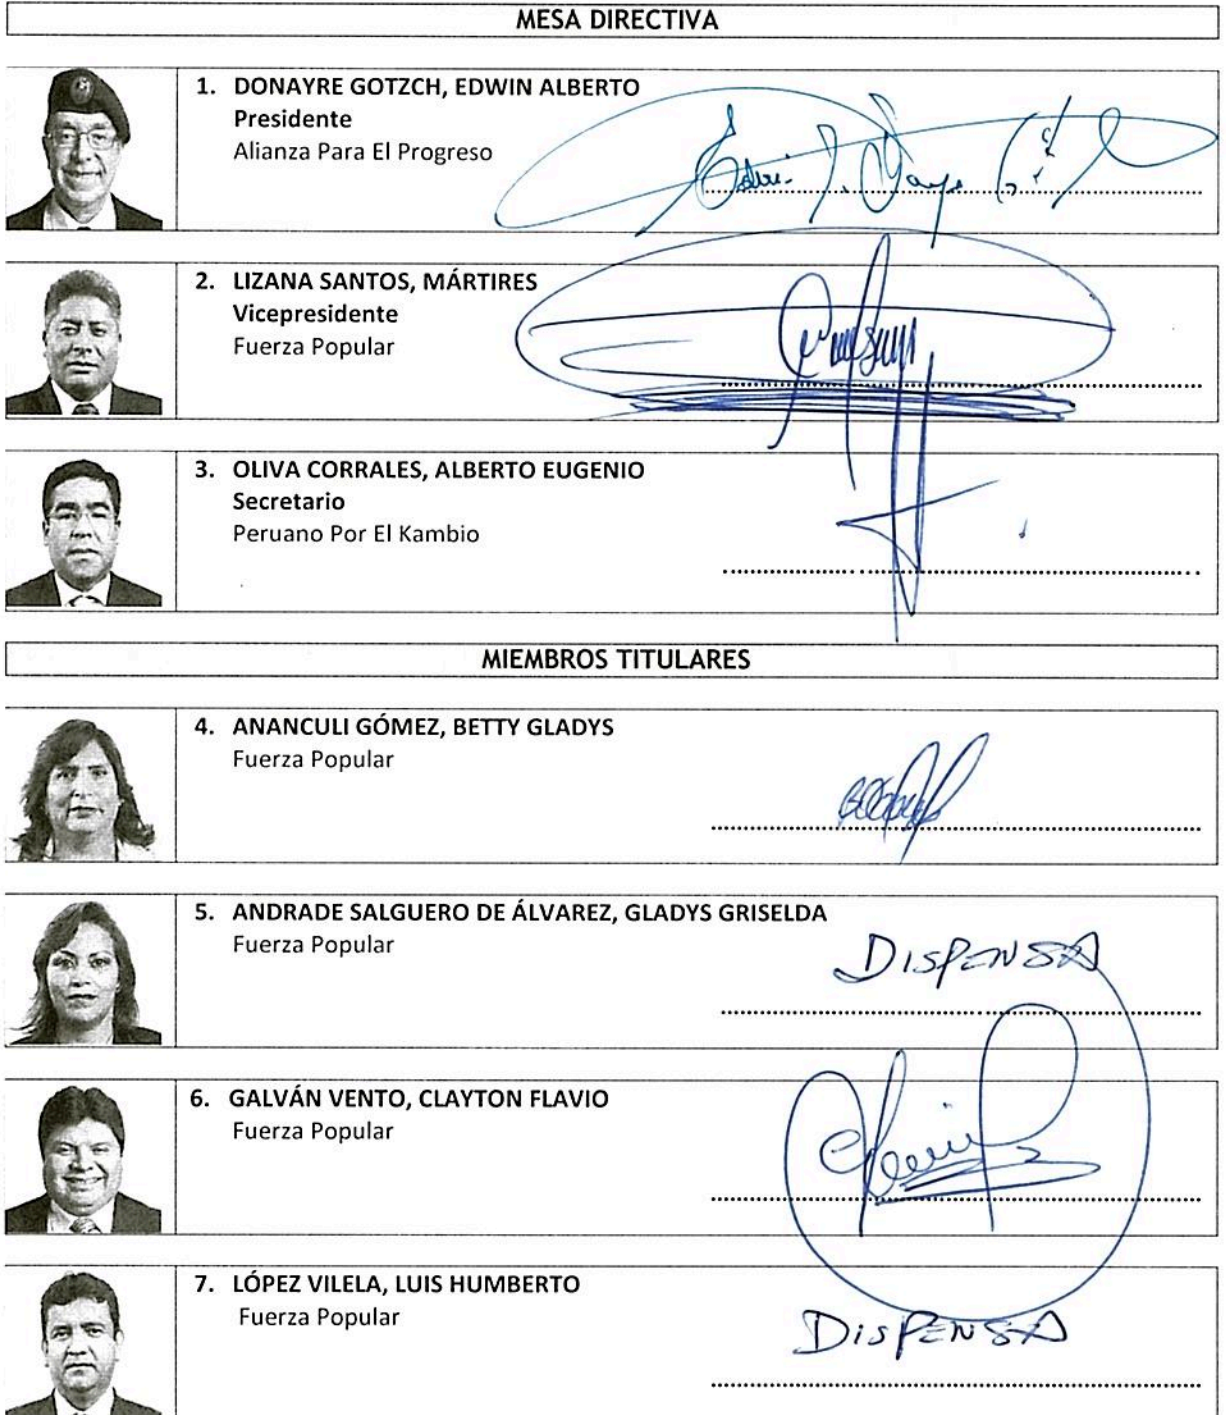 MESA DIRECTIVA
1. DONAYRE GOTZCH, EDWIN ALBERTO
Presidente
Alianza Para El Progreso
2. LIZANA SANTOS, MÁRTIRES
Vicepresidente
Fuerza Popular
3. OLIVA CORRALES, ALBERTO EUGENIO
Secretario
Peruano Por El Kambio
MIEMBROS TITULARES
4. ANANCULI GÓMEZ, BETTY GLADYS
Fuerza Popular
5. ANDRADE SALGUERO DE ÁLVAREZ, GLADYS GRISELDA
Fuerza Popular
DISPENSA
6. GALVÁN VENTO, CLAYTON FLAVIO
Fuerza Popular
7. LÓPEZ VILELA, LUIS HUMBERTO
Fuerza Popular
DISPENSA